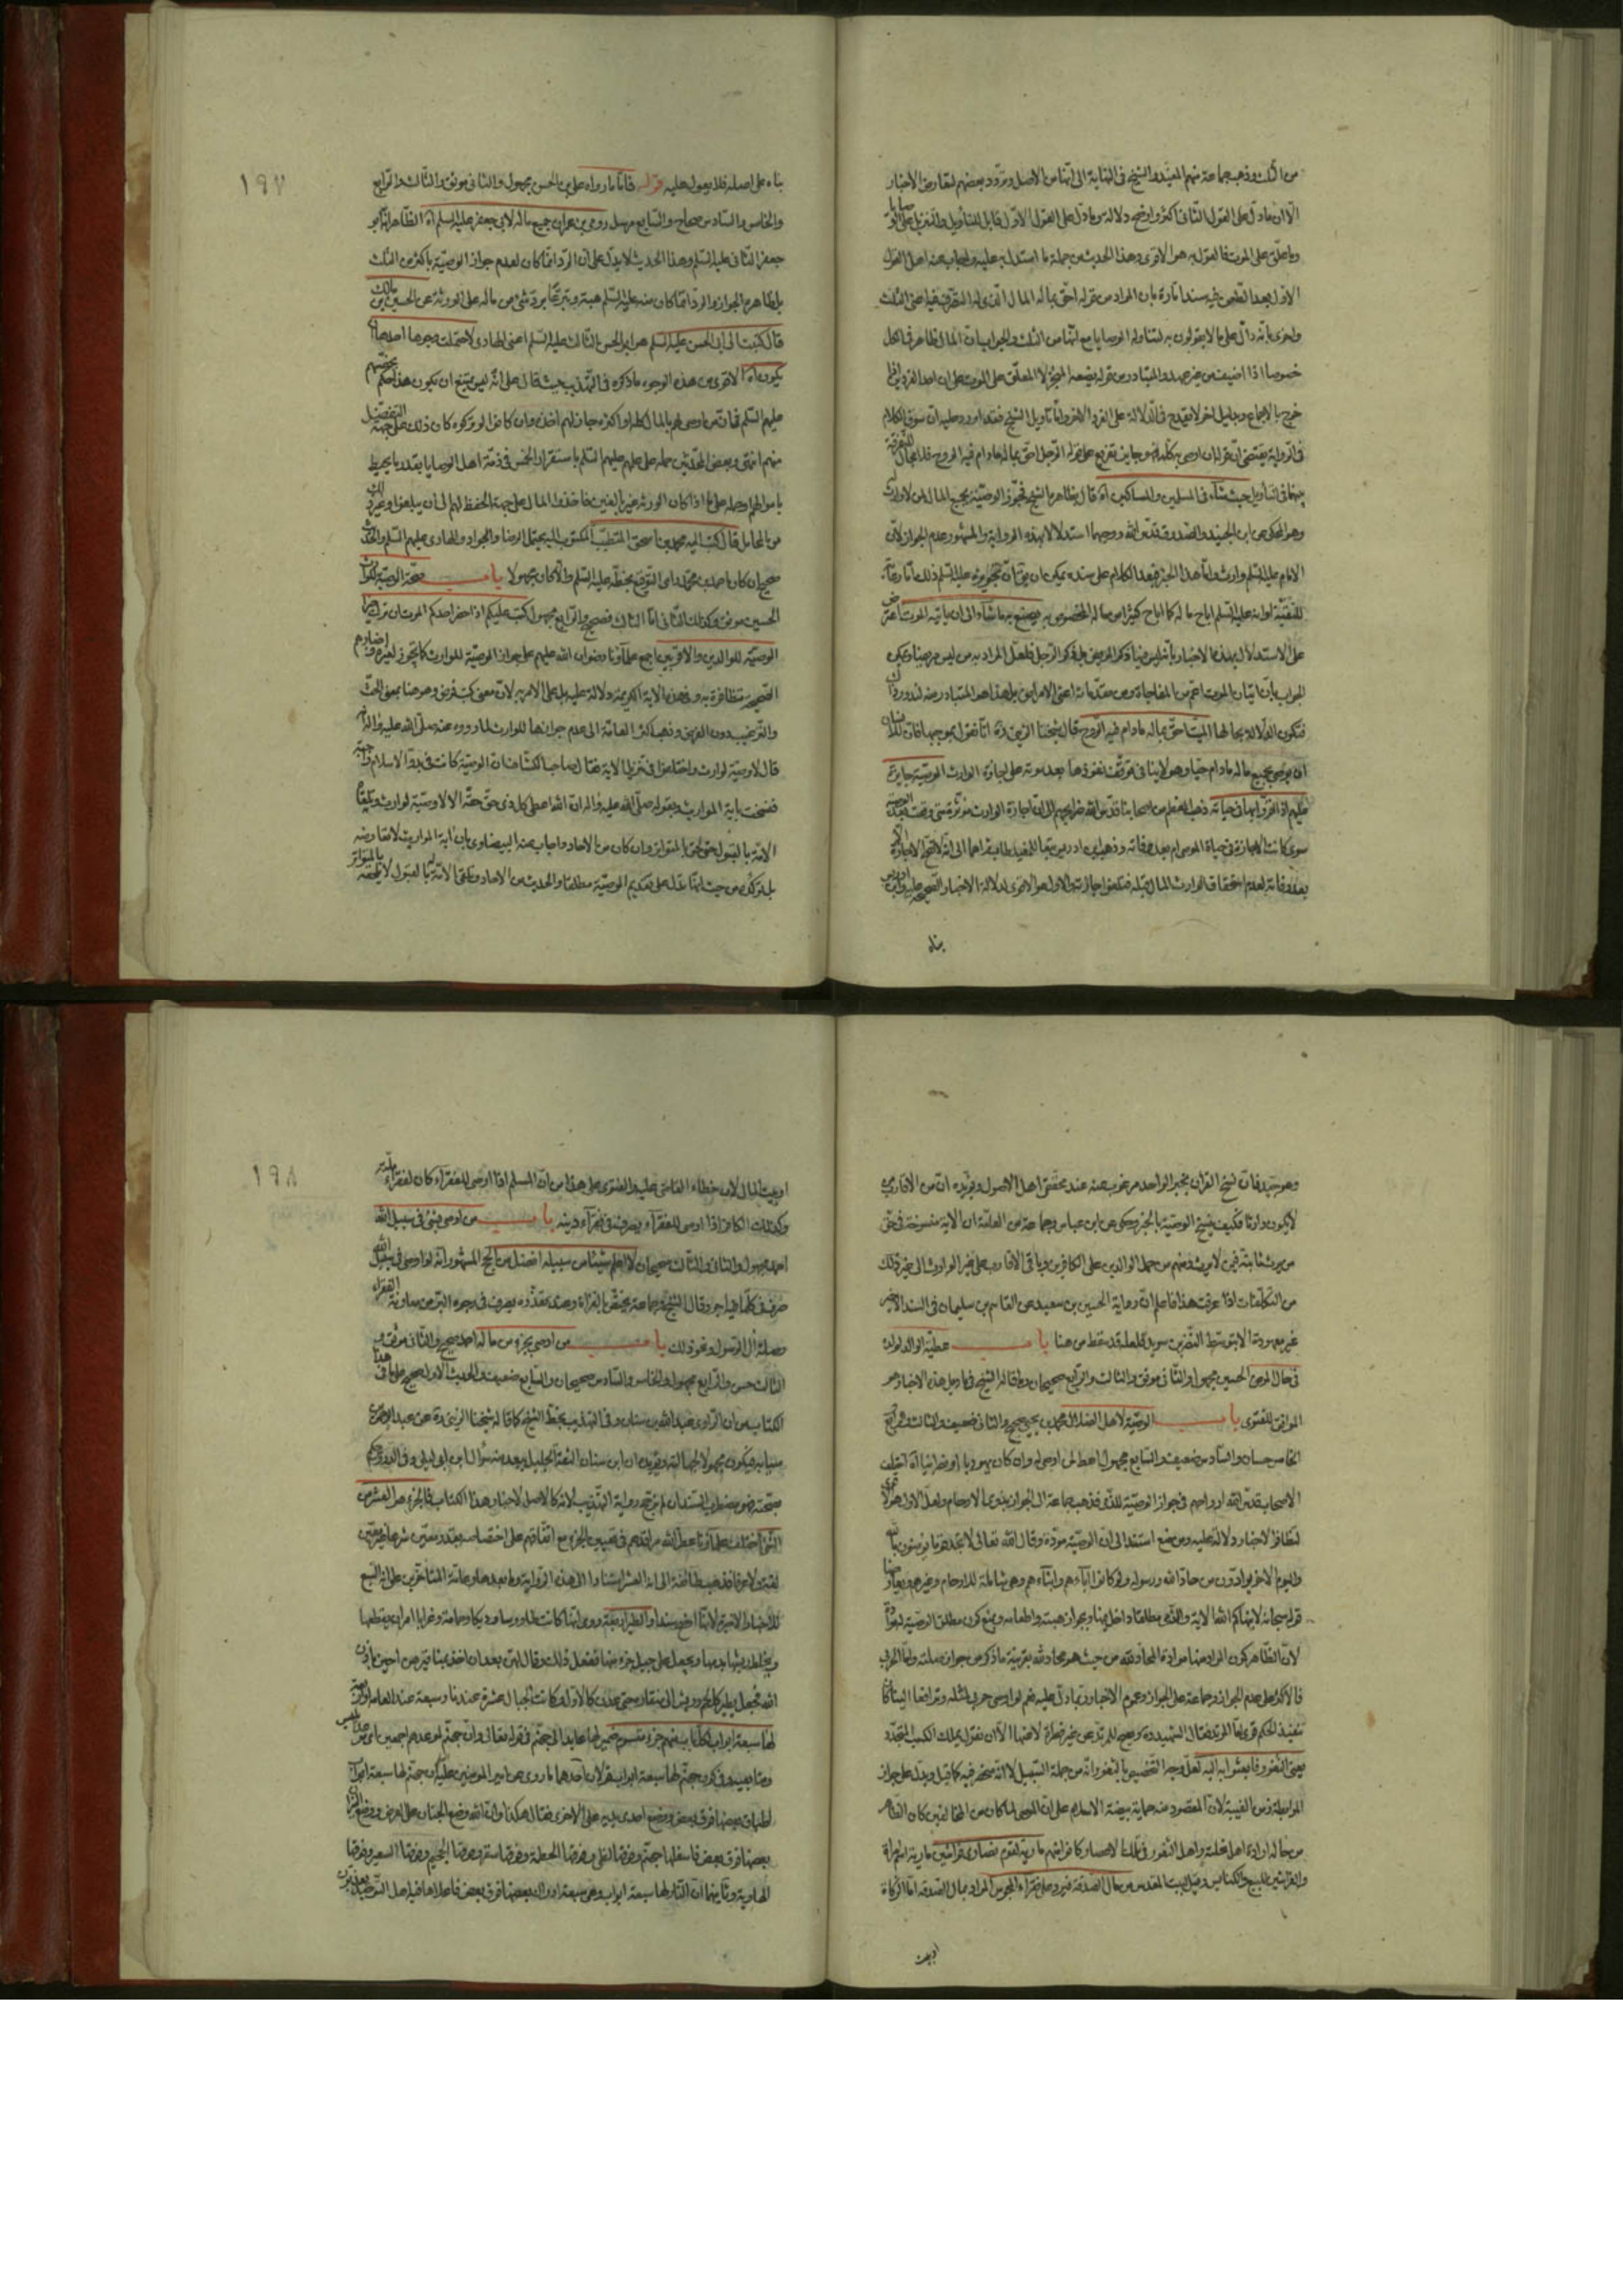 من الثلث وذهب جماعة منهم المفيد والشيخ في النهاية الى انها من الاصل وتردد بعضهم لتعارض الاخبار
الا ان ما دل على القول الثاني اكثر واوضح دلالة وما دل على القول الاول قابل للتأويل
وما علق على الموت فالقول به هو الاقوى وهذا الحديث من جملة ما استدل به عليه واجاب عنه اهل القول
الاول بعد الطعن فيه سندا تارة بان المراد من قوله احق بماله المال الذي له التصرف فيه اعني الثلث
واخرى بانه دال على ما لا يقولون به لتناوله الوصايا مع انها من الثلث والجواب ان المال ظاهر في الكل
خصوصا اذا اضيف من غير عهد والمتبادر من قوله يضعه المنجز لا المعلق على الموت على ان احد الفردين اذا
خرج بالاجماع وبدليل اخر لا يقدح في الدلالة على الفرد الاخر واما تاويل الشيخ فقد اورد عليه ان سوق الكلام
في الرواية يقتضي ان قوله ان اوصى به كله فهو جايز تفريع على قوله الرجل احق بماله ما دام فيه الروح فلا مجال للتفرقة
بينهما في التأويل حيث شاء في المسلمين والمساكين اه قال بظاهره الشيخ فجوز الوصية بجميع المال لمن لا وارث له
وهو المحكي عن ابن الجنيد والصدوق قدس الله روحهما استدلالا بهذه الرواية والمشهور عدم الجواز لان
الامام عليه السلم وارث واما هذا الخبر فبعد الكلام على سنده يمكن ان يقال ان تجويزه عليه السلم ذلك اما رعاية
للتقية او انه عليه السلم اباح ماله كما اباح كثيرا من ماله المخصوص به يصنع به ما شاء الى ان ياتيه الموت اعترض
على الاستدلال بهذه الاخبار بانه ليس فيها ذكر المريض بل ذكر الرجل فلعل المراد به من ليس مريضا ويمكن
الجواب بان اتيان الموت اعم من المفاجاة ومن مقدماته اعني الامراض بل هذا هو المتبادر منه لندور ذاك
فتكون الدلالة بحالها الميت احق بماله ما دام فيه الروح قال شيخنا الزيني ره انا نقول بموجبها فان للانسان
ان يوصي بجميع ماله ما دام حيا وهو لا ينافي توقف نفوذها بعد موته على اجازة الوارث الوصية جايزة
عليهم اذا اقروا بها في حياته ذهب المعظم من اصحابنا قدس الله ضرايحهم الى ان اجازة الوارث مؤثرة متى وقعت بعد الوصية
سوى كانت الاجازة في حياة الموصي ام بعد وفاته وذهب ابن ادريس تبعا للمفيد طاب ثراهما الى انه لا تصح الاجازة الا
بعد وفاته لعدم استحقاق الوارث المال قبله فتلغو اجازته والاول هو الاقوى لدلالة الاخبار الصحيحة عليه وابن ادريس
بناء
١٩٧
بناء على اصله فلا يعول عليه قوله فاما ما رواه علي بن الحسن مجهول والثاني موثق والثالث والرابع
والخامس والسادس صحاح والسابع مرسل رومي بن عمران جميع ماله لابي جعفر عليه السلم اه الظاهر انه ابو
جعفر الثاني عليه السلم وهذا الحديث لا يدل على ان الرد انما كان لعدم جواز الوصية باكثر من الثلث
بل ظاهره الجواز والرد انما كان منه عليه السلم هبة وتبرعا برد شيء من ماله على الورثة عن الحسين بن مالك
قال كتبت الى ابي الحسن عليه السلم هو ابو الحسن الثالث عليه السلم اعني الهادي لاحتملت وجوها احدها ان
يكون اه الاقوى من هذه الوجوه ما ذكره في التهذيب حيث قال على انه ليس يمتنع ان يكون هذا حكم يخصهم
عليهم السلم فان من اوصى لهم بالمال كله او اكثره جاز لهم اخذه وان كانوا لو تركوه كان ذلك على جهة التفضل
منهم انتهى وبعض المحدثين حمله على علمهم عليهم السلم باستقرار الخمس في ذمة اهل الوصايا بقدر ما يحيط
باموالهم وحمله على ما اذا كان الورثة غير بالغين فاخذوا المال على جهة الحفظ لهم الى ان يبلغوا وغير ذلك
من المحامل قال كتب اليه محمد بن اسحق المتطبب المكتوب اليه يحتمل الرضا والجواد والهادي عليهم السلم والحديث
صحيح ان كان احمد بن محمد راى التوقيع بخطه عليه السلم والا كان مجهولا باب صحة الوصية للوارث
الحسين موثق وكذلك الثاني اما الثالث فصحيح والرابع مجهول كتب عليكم اذا حضر احدكم الموت ان ترك خيرا
الوصية للوالدين والاقربين اجمع علماؤنا رضوان الله عليهم على جواز الوصية للوارث كما تجوز لغيره واخبارهم
الصحيحة متظافرة به وفي هذه الاية الكريمة دلالة عليه بل على الامر به لان معنى كتب فرض وهو هنا بمعنى الحث
والترغيب دون الفرض وذهب اكثر العامة الى عدم جوازها للوارث لما رووه عنه صلى الله عليه واله انه
قال لا وصية لوارث واختلفوا في تنزيل الاية فقال صاحب الكشاف ان الوصية كانت في بدو الاسلام واجبة
فنسخت باية المواريث وبقوله صلى الله عليه واله ان الله اعطى كل ذي حق حقه الا لا وصية لوارث وتلقته
الامة بالقبول حتى لحق بالمتواتر وان كان من الاحاد واجاب عنه البيضاوي بان اية المواريث لا تعارضه
بل تؤكده من حيث انها تدل على تقديم الوصية مطلقا والحديث من الاحاد وتلقي الامة له بالقبول لا يلحقه بالمتواتر
وهو جيد فان نسخ القران بخبر الواحد مرغوب عنه عند محققي اهل الاصول ويؤيده ان من الاقارب من
لا يكون وارثا فكيف ينسخ الوصية بالخبر وحكي عن ابن عباس وجماعة من العامة ان الاية منسوخة في حق
من يرث ثابتة فيمن لا يرث ومنهم من حمل الوالدين على الكافرين وباقي الاقارب على غير الوارث الى غير ذلك
من التكلفات اذا عرفت هذا فاعلم ان رواية الحسين بن سعيد عن القاسم بن سليمان في السند الاخير
غير معهودة الا بتوسط النضر بن سويد فلعله قد سقط من هنا باب عطية الوالد لولده
في حال المرض الحسين مجهول والثاني موثق والثالث والرابع صحيحان وما قاله الشيخ في تاويل هذه الاخبار هو
الموافق للفتوى باب الوصية لاهل الضلال محمد بن يحيى صحيح والثاني ضعيف والثالث والرابع
الخامس حسان والسادس ضعيف والسابع مجهول اعط لمن اوصى له وان كان يهوديا او نصرانيا اه اختلف
الاصحاب قدس الله ارواحهم في جواز الوصية للذمي فذهب جماعة الى الجواز بذوي الارحام ولعل الاول هو الاقوى
لتظافر الاخبار دلالة عليه ومن منع استند الى ان الوصية مودة وقال الله تعالى لا تجد قوما يؤمنون بالله
واليوم الاخر يوادون من حاد الله ورسوله ولو كانوا اباءهم وابناءهم وهي شاملة للارحام وغيرهم ويعارضها
قوله سبحانه لا ينهاكم الله الاية والذمي مطلقا داخل فيها وبجواز هبته واطعامه ويمنع كون مطلق الوصية توددا
لان الظاهر كون المراد منها موادة المحاد لله من حيث هو محاد لله بقرينة ما ذكر من جواز صلته واما الحربي
فالاكثر على عدم الجواز وجماعة على الجواز وعموم الاخبار دال عليه نعم لو اوصى حربي لمثله وترافعا الينا كان
تنفيذ الحكم قويا
يعني الثغور فابعثوا به اليه لعل وجه التخصيص بالثغور انه من جملة السبيل لا انه منحصر فيه كما قيل ويدل على جواز
المرابطة زمن الغيبة لان المقصود منه حماية بيضة الاسلام على ان الموصي لما كان من المخالفين كان الظاهر
من حاله ارادة اهل نحلته واهل الثغور في تلك الاعصار كانوا منهم مارية لقوم نصارى فراشين مارية اسم امراة
والفراشين للبيع والكنائس وقيل لبيت المقدس من مال الصدقة فيرد على فقراء المجوس المراد بمال الصدقة اما الزكاة
او بيت
١٩٨
او بيت المال لان خطاء القاضي عليه والفتوى على هذا من ان المسلم اذا اوصى للفقراء كان لفقراء ملته
وكذلك الكافر اذا اوصى للفقراء يصرف في فقراء دينه باب من اوصى بشيء في سبيل الله
احمد مجهول والثاني والثالث صحيحان لا اعلم شيئا من سبيله افضل من الحج المشهور انه لو اوصى في سبيل الله
صرف في كلما فيه اجر وقال الشيخ وجماعة يختص بالغزاة وعند تعذره يصرف في وجوه البر من معاونة الفقراء
وصلة ال الرسول ونحو ذلك باب من اوصى بجزء من ماله احمد صحيح والثاني موثق و
الثالث حسن والرابع مجهول والخامس والسادس صحيحان والسابع ضعيف والحديث الاول صحيح على ما في هذا
الكتاب من ان الراوي عبد الله بن سنان وفي التهذيب بخط الشيخ كما قاله شيخنا الزيني ره عن عبد الرحمن بن
سيابة فيكون مجهولا لجهالته ويؤيده ان ابن سنان الثقة الجليل يبعد منه سؤال ابن ابي ليلى
الشيء اختلف علماؤنا عطر الله مراقدهم في تعيين الجزء مع اتفاقهم على اختصاصه بقدر معين شرعا غير معين
لغة ولا عرفا فذهب طائفة الى انه العشر استنادا الى هذه الرواية وما بعدها وعامة المتاخرين على انه السبع
للاخبار الاتية لانها اصح سندا والطير اربعة وروي انها كانت طاوسا وديكا وحمامة وغرابا امر ان يقطعها
ويخلط ريشها بدمها ويجعل على كل جبل جزء منها ففعل ذلك وقال لهن بعد ان اخذ بمناقيرهن اجبن باذن
الله فجعل يطير
لها سبعة ابواب لكل باب منهم جزء مقسوم ضمير لها عايد الى جهنم في قوله تعالى وان جهنم لموعدهم اجمعين
وفي كون جهنم لها سبعة ابواب قولان احدهما ما روي عن امير المؤمنين عليه السلم ان جهنم لها سبعة ابواب
اطباق بعضها فوق بعض ووضع احدى يديه على الاخرى فقال هكذا وان الله وضع الجنان على العرض ووضع النيران
بعضها فوق بعض فاسفلها جهنم وفوقها لظى وفوقها الحطمة وفوقها سقر وفوقها الجحيم وفوقها السعير وفوقها
الهاوية وثانيهما ان النار لها سبعة ابواب وهي سبعة ادراك بعضها فوق بعض فاعلاها فيه اهل التوحيد يعذبون